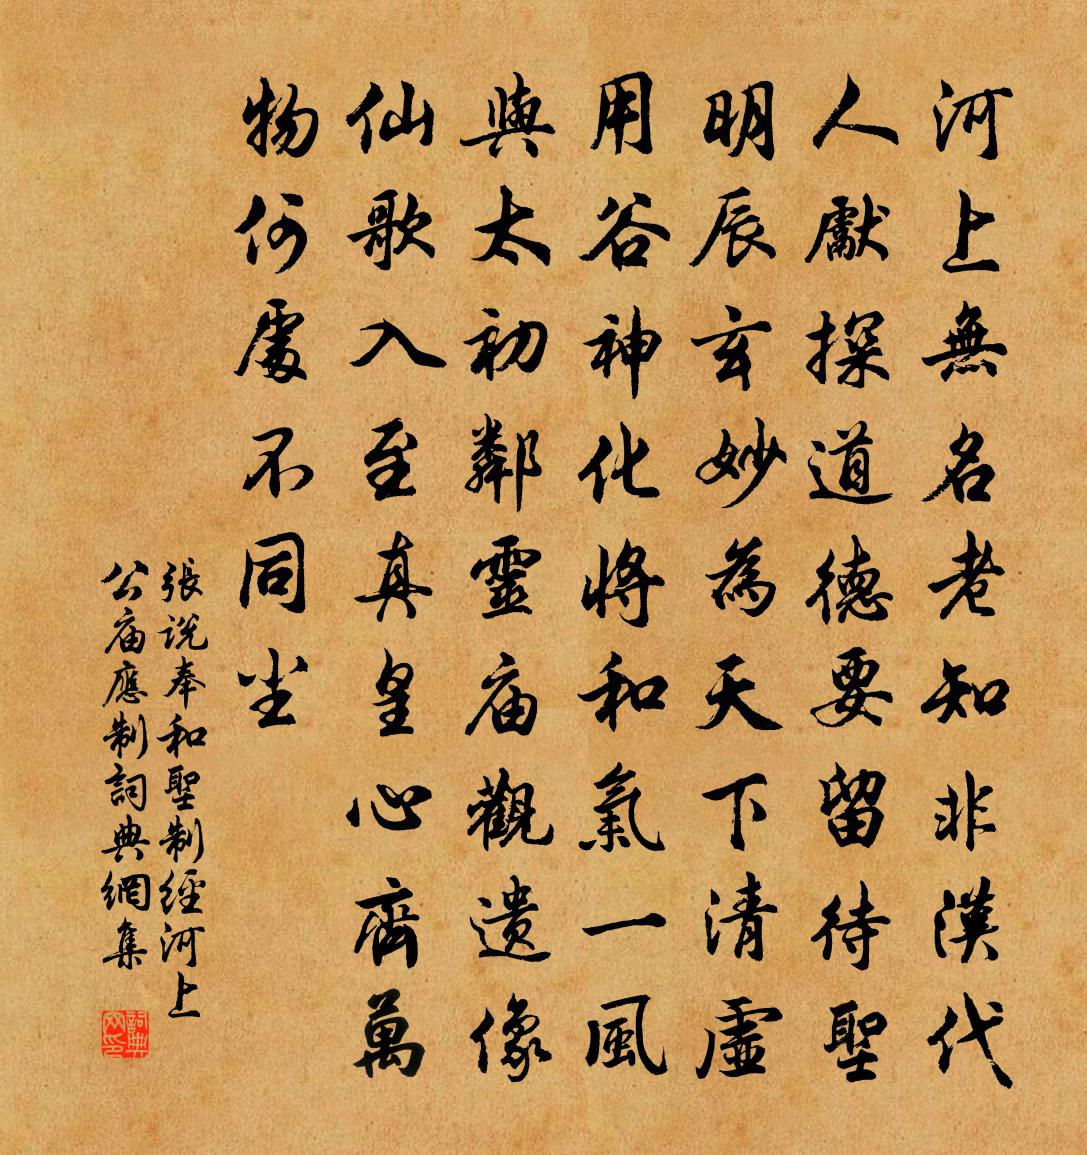 河上無名老知非漢代
人獻探道德要留待聖
明辰玄妙為天下清虛
用谷神化將和氣一風
與太初鄰靈庙觀遺像
仙歌入至真皇心齊萬
物何處不同尘
張说奉和聖制經河上
公庙應制詞典網集
詞典
网印